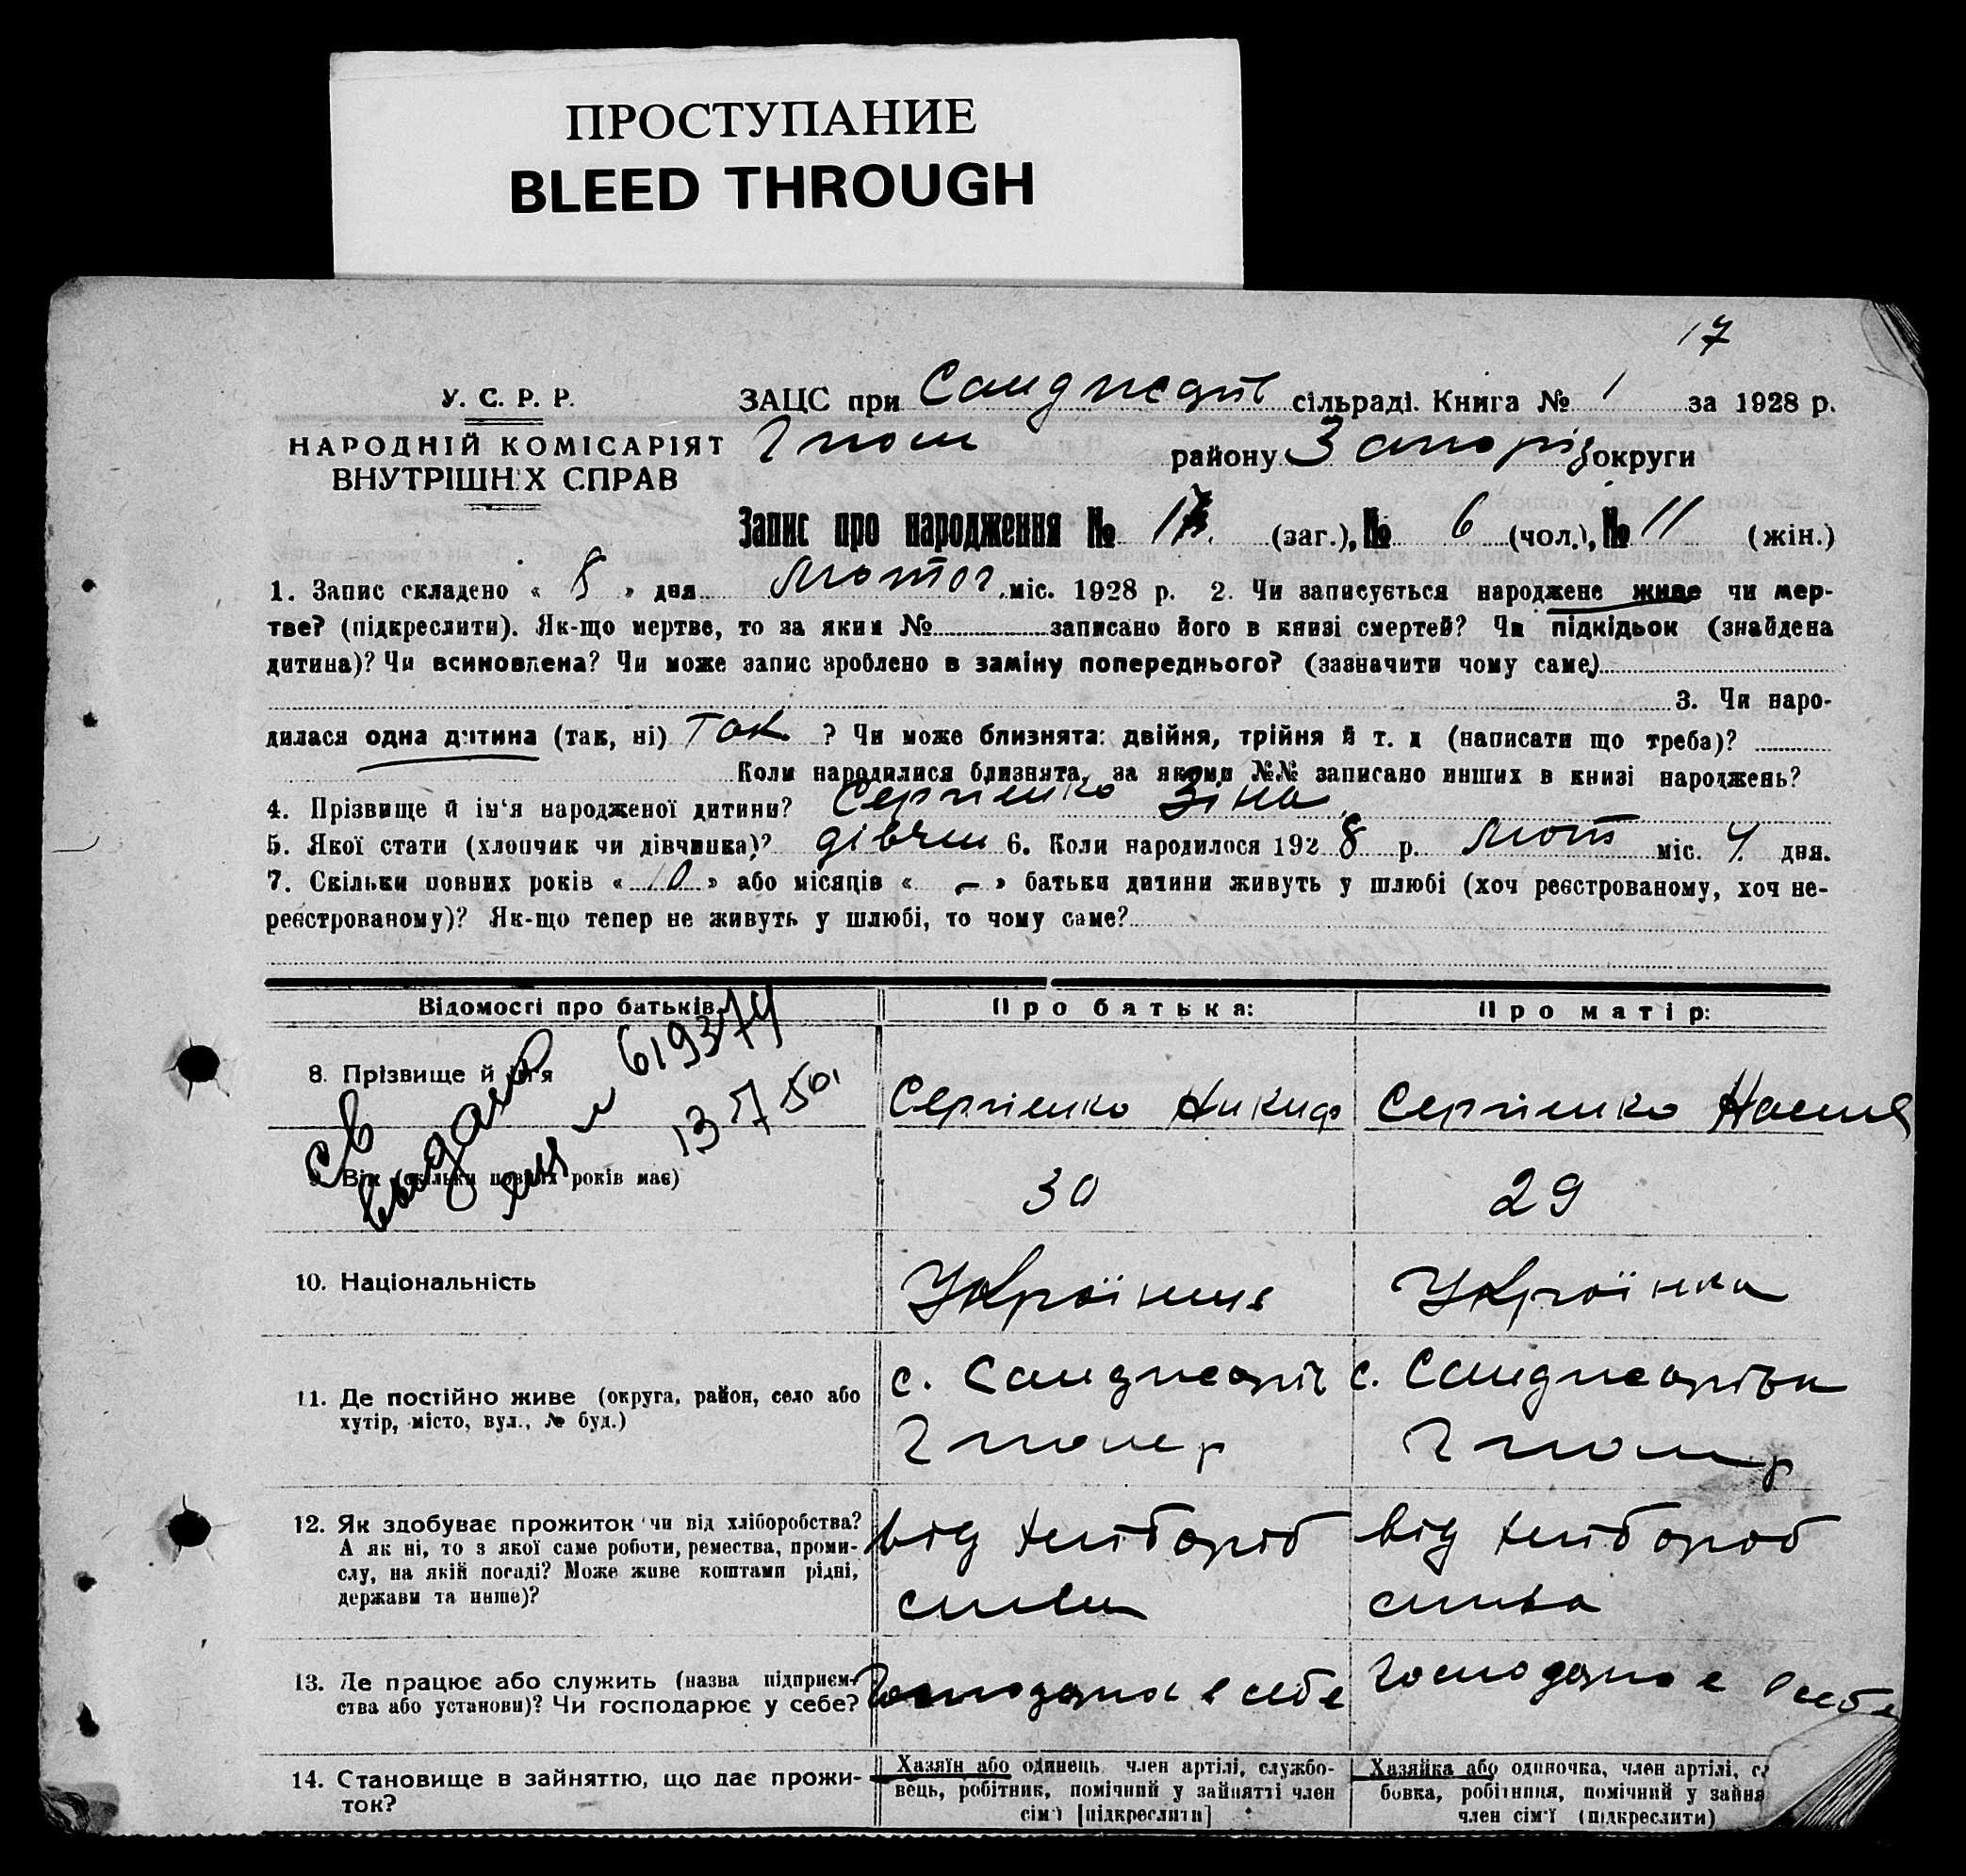 ПРОСТУПАНИЕ
BLEED THROUGH
17
У. С. Р. Р.
НАРОДНІЙ КОМІСАРІЯТ
ВНУТРІШНІХ СПРАВ
ЗАЦС при сільраді. Книга № 1 за 1928 р.
району Запоріз округи
Запис про народження № 17. (заг.), № 6 (чол.), № 11 (жін.)
1. Запис складено « 8 » дня Лютог міс. 1928 р. 2. Чи записується народжене живе чи мер-
тве? (підкреслити). Як-що мертве, то за яким № записано його в книзі смертей? Чи підкідьок (знайдена
дитина)? Чи всиновлена? Чи може запис зроблено в заміну попереднього? (зазначити чому саме)
3. Чи наро-
дилася одна дитина (так, ні) Так ? Чи може близнята: двійня, трійня й т. д (написати що треба)?
Коли народилися близнята, за якими №№ записано инших в книзі народжень?
4. Прізвище й ім'я народженої дитини? Сергієнко Зіна
5. Якої стати (хлопчик чи дівчинка)? дівчи 6. Коли народилося 1928 р. Лют міс. 4 дня.
7. Скільки повних років « 10 » або місяців « – » батьки дитини живуть у шлюбі (хоч реєстрованому, хоч не-
реєстрованому)? Як-що тепер не живуть у шлюбі, то чому саме?
Відомості про батьків
Про батька:
Про матір:
8. Прізвище й ім'я
Сергієнко Никиф
Сергієнко Настя
Св
выдано
619374
13 7 50
9. Вік (скільки повних років має)
30
29
10. Національність
Українець
Українка
11. Де постійно живе (округа, район, село або
хутір, місто, вул., № буд.)
12. Як здобуває прожиток чи від хліборобства?
А як ні, то з якої саме роботи, ремества, проми-
слу, на якій посаді? Може живе коштами рідні,
держави та инше)?
від хлібороб
ства
від хлібороб
ства
13. Де працює або служить (назва підприєм-
ства або установи)? Чи господарює у себе?
Господарює в себе
Господарює в себе
14. Становище в зайняттю, що дає прожи-
ток?
Хазяїн або одинець, член артілі, службо-
вець, робітник, помічний у зайнятті член
сім'ї [підкреслити]
Хазяйка або одиночка, член артілі,
бовка, робітниця, помічний у зайня
член сім'ї (підкреслити)